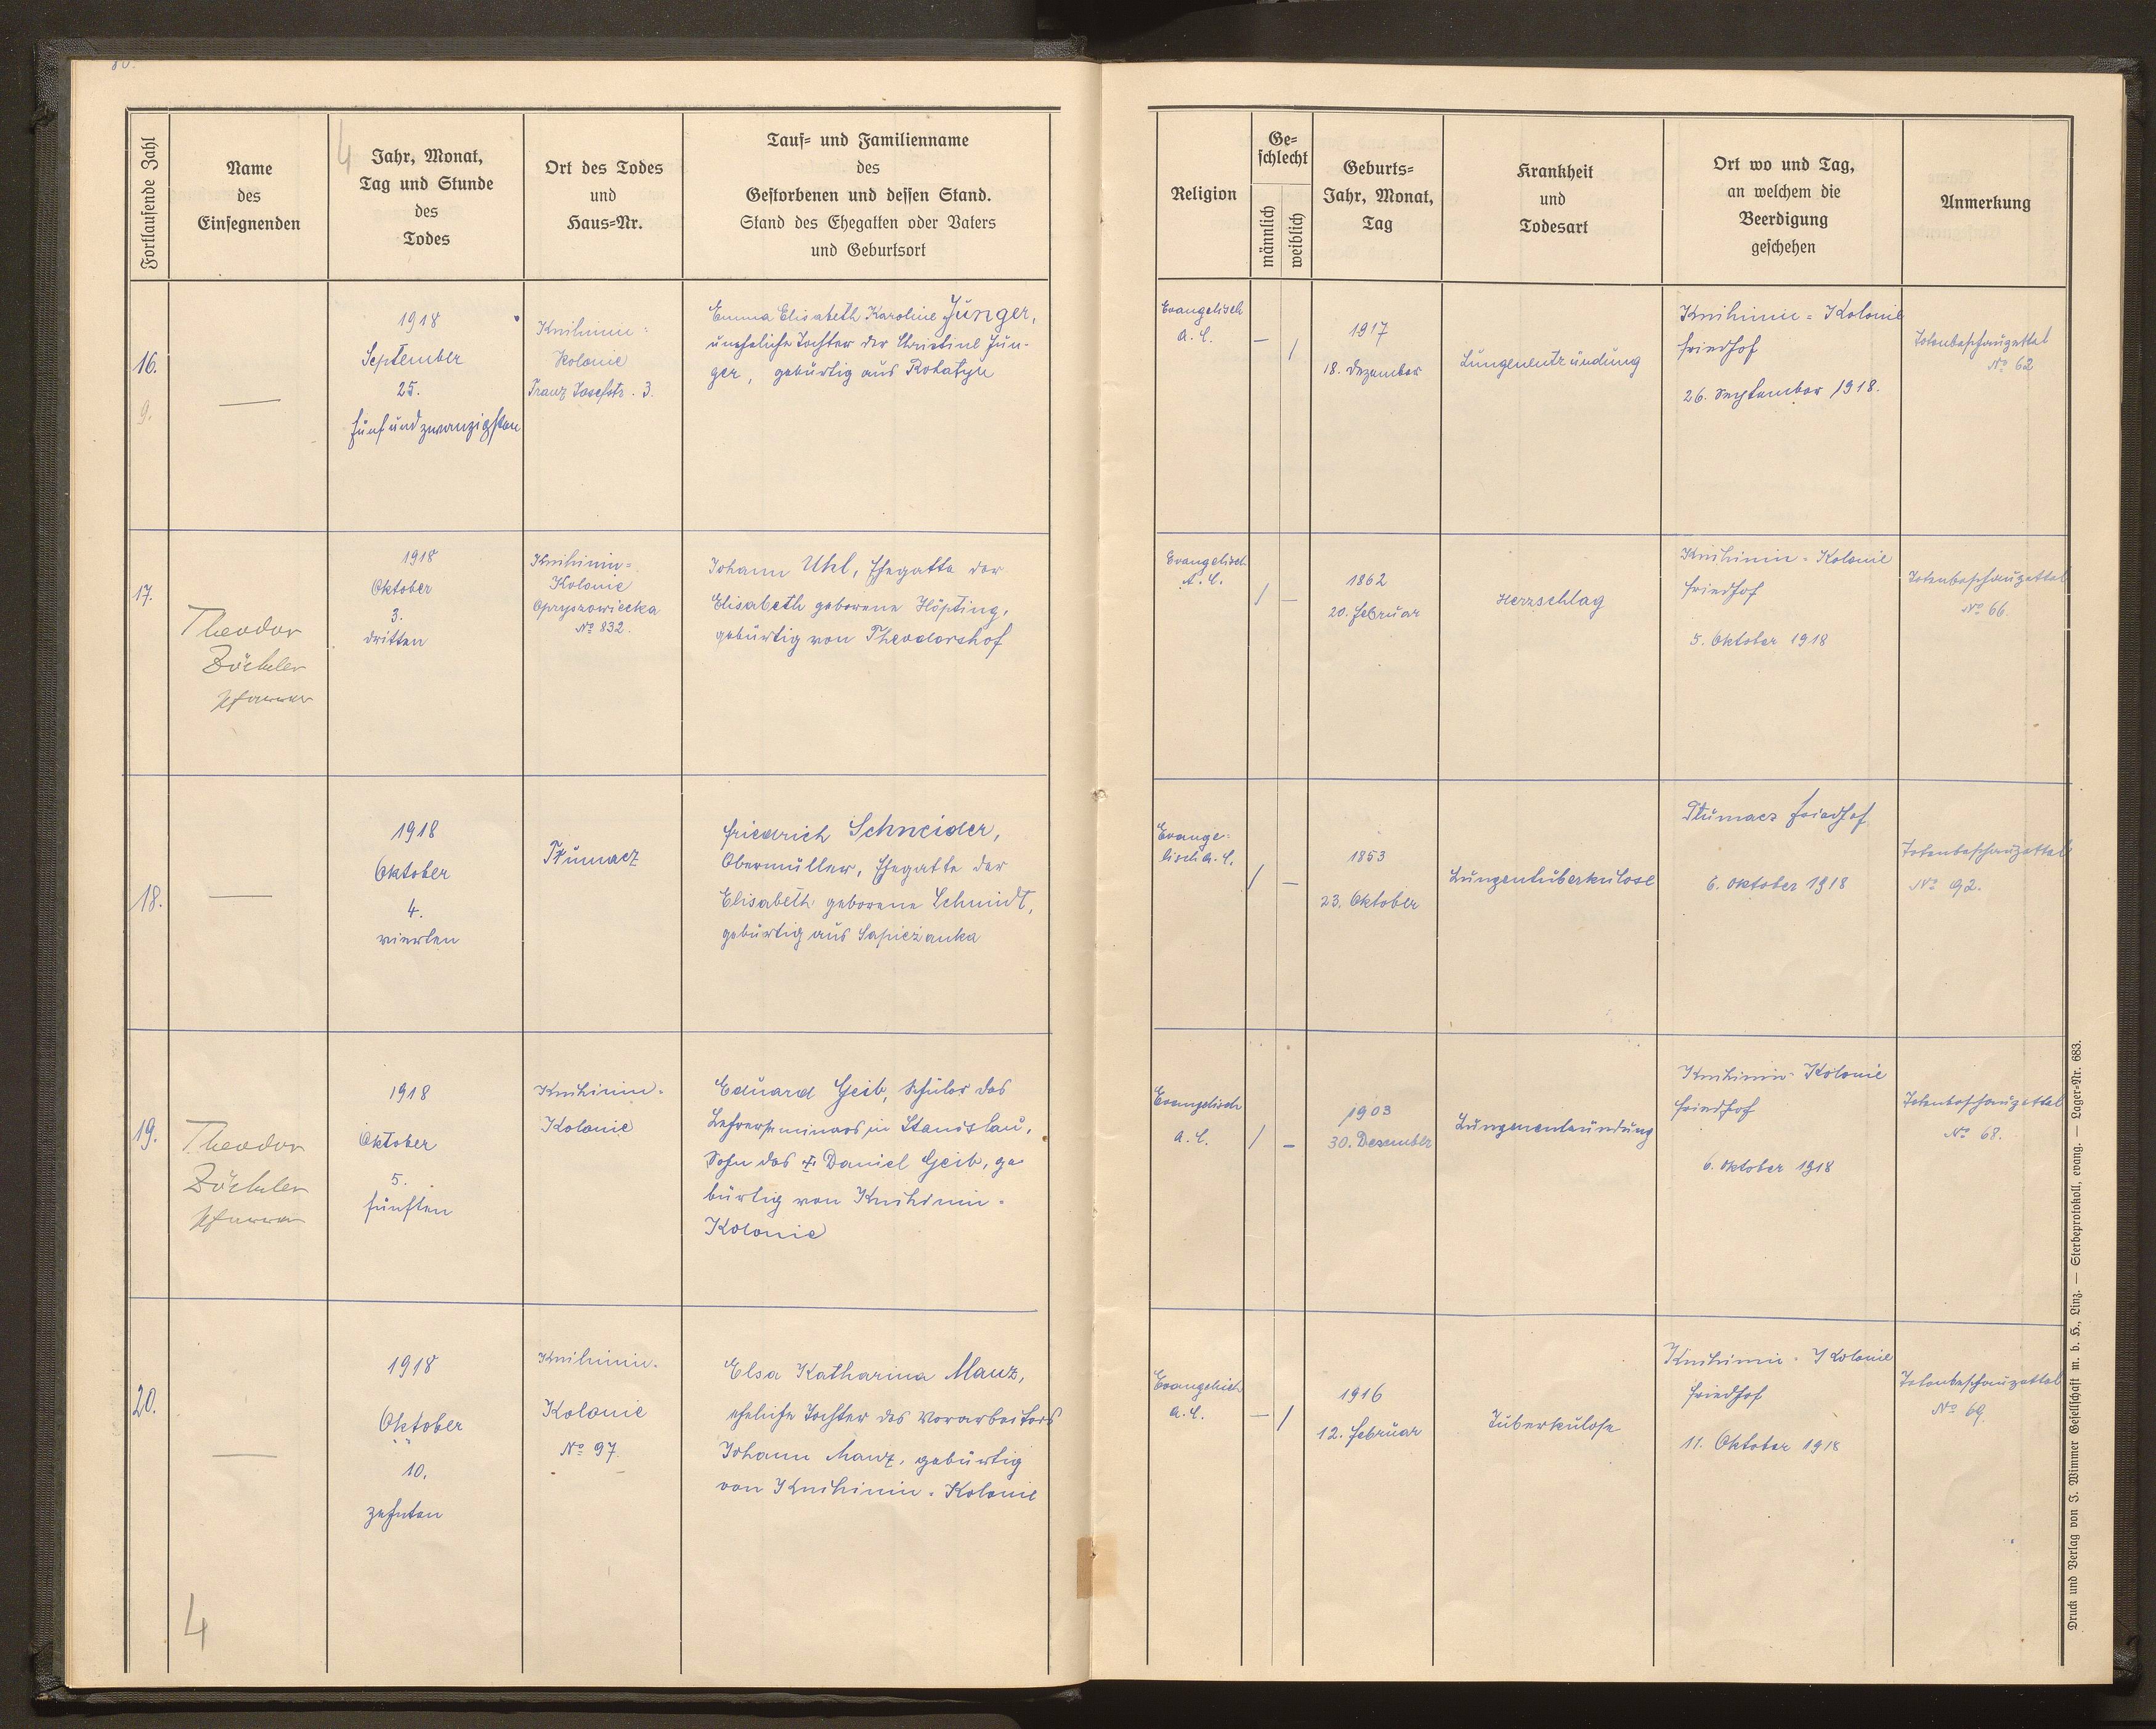 80.
Fortlaufende Zahl
Name
des
Einsegnenden
4
Jahr, Monat,
Tag und Stunde
des
Todes
Ort des Todes
und
Haus=Nr.
Tauf= und Familienname
des
Gestorbenen und dessen Stand.
Stand des Ehegatten oder Vaters
und Geburtsort
Religion
Ge=
schlecht
männlich
weiblich
Geburts=
Jahr, Monat,
Tag
Krankheit
und
Todesart
Ort wo und Tag,
an welchem die
Beerdigung
geschehen
Anmerkung
16.
9.
—
1918
September
25.
fünfundzwanzigsten
Knihinin=
Kolonie
Franz Josefstr. 3.
Emma Elisabeth Karoline Junger,
uneheliche Tochter der Christine Jun-
ger, gebürtig aus Rohatyn
Evangelisch
A. C.
—
/
1917
18. Dezember
Lungenentzündung
Knihinin=Kolonie
Friedhof
26. September 1918.
Totenbeschauzettel
No 62
17.
Theodor
Zöckler
Pfarrer
1918
Oktober
3.
dritten
Knihinin=
Kolonie
Opryszowiecka
No 832.
Johann Uhl, Ehegatte der
Elisabeth geborene Höpting,
gebürtig von Theodorshof
Evangelisch
A. C.
/
—
1862
20. Februar
Herzschlag
Knihinin=Kolonie
Friedhof
5. Oktober 1918
Totenbeschauzettel
No 66.
18.
—
1918
Oktober
4.
vierten
Tłumacz
Friedrich Schneider,
Obermüller, Ehegatte der
Elisabeth geborene Schmidt,
gebürtig aus Sapieżanka
Evange=
lisch A. C.
/
—
1853
23. Oktober
Lungentuberkulose
Tłumacz Friedhof
6. Oktober 1918
Totenbeschauzettel
No 92.
19.
Theodor
Zöckler
Pfarrer
1918
Oktober
5.
fünften
Knihinin-
Kolonie
Eduard Geib, Schüler des
Lehrerseminars in Stanislau,
Sohn des + Daniel Geib, ge
bürtig von Knihinin-
Kolonie
Evangelisch
A. C.
/
—
1903
30. Dezember
Lungenentzündung
Knihinin-Kolonie
Friedhof
6. Oktober 1918
Totenbeschauzettel
No 68.
20.
—
1918
Oktober
10.
zehnten
Knihinin-
Kolonie
No 97.
Elsa Katharina Manz,
eheliche Tochter des Vorarbeiters
Johann Manz, gebürtig
von Knihinin-Kolonie
Evangelisch
A. C.
—
/
1916
12. Februar
Tuberkulose
Knihinin-Kolonie
Friedhof
11. Oktober 1918
Totenbeschauzettel
No 69.
4
Druck und Verlag von J. Wimmer Gesellschaft m. b. H., Linz. — Sterbeprotokoll, evang. — Lager=Nr. 683.